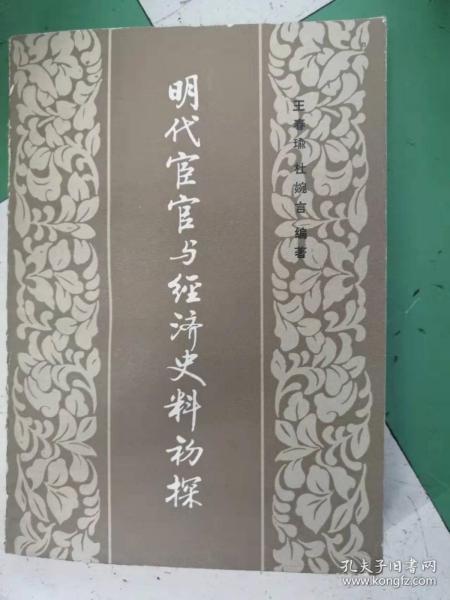 明代宦官与經济史料初探
王春瑜 杜婉言 编著
孔夫子旧书网
www.kongfz.com